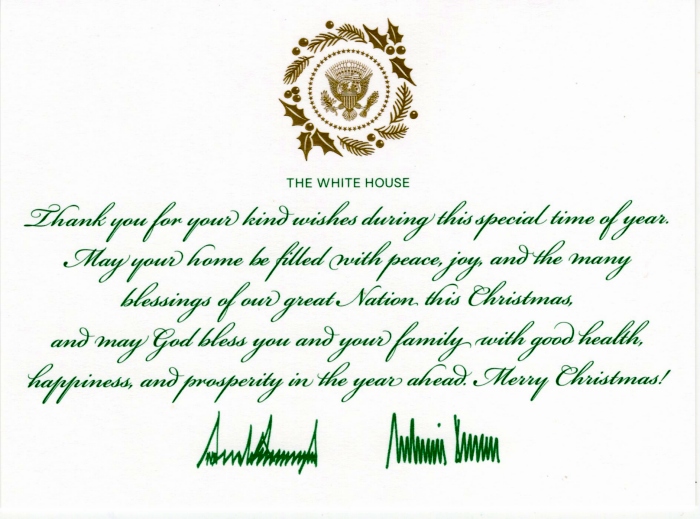 THE WHITE HOUSE
Thank you for your kind wishes during this special time of year.
May your home be filled with peace, joy, and the many
blessings of our great Nation this Christmas,
and may God bless you and your family with good health,
happiness, and prosperity in the year ahead. Merry Christmas!